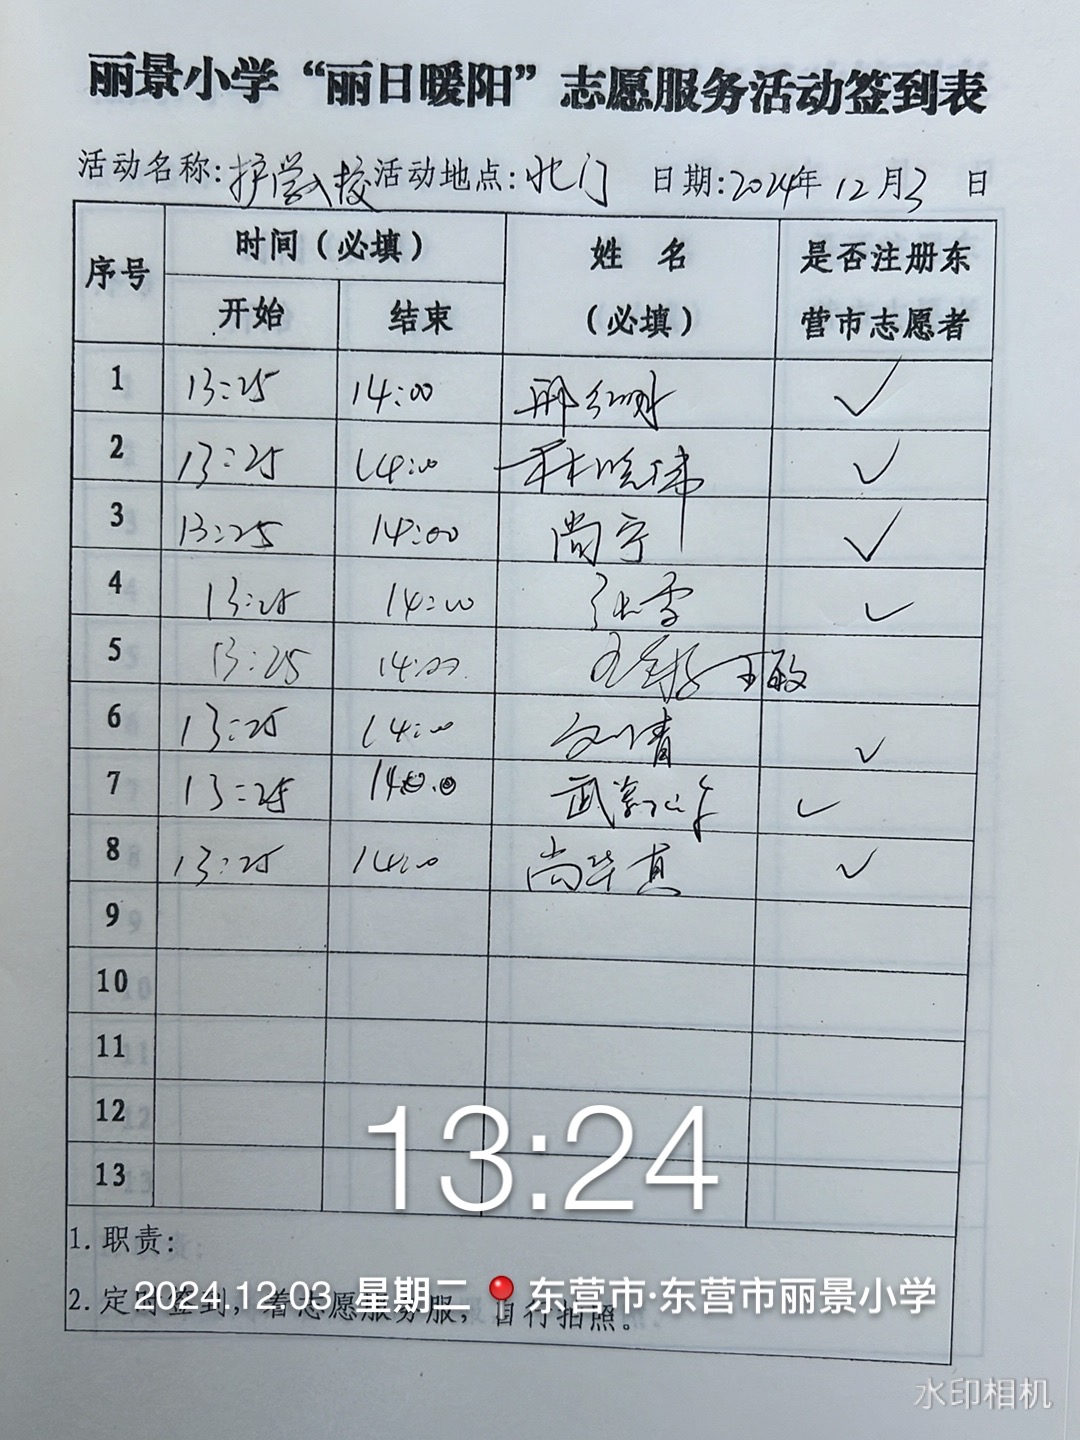 丽景小学“丽日暖阳”志愿服务活动签到表
活动名称:护学入校 活动地点:北门 日期:2024年12月3日
序号 时间(必填) 姓 名 (必填) 是否注册东营市志愿者
开始 结束
1 13:25 14:00 ✓
2 13:25 14:00 ✓
3 13:25 14:00 尚宁 ✓
4 13:25 14:00 张雪 ✓
5 13:25 14:00 王敏
6 13:25 14:00 刘青 ✓
7 13:25 14:00 武 ✓
8 13:25 14:00 尚华真 ✓
9
10
11
12
13
13:24
1.职责:
2.定时签到,着志愿服务服,自行拍照。
2024.12.03 星期二 📍东营市·东营市丽景小学
水印相机